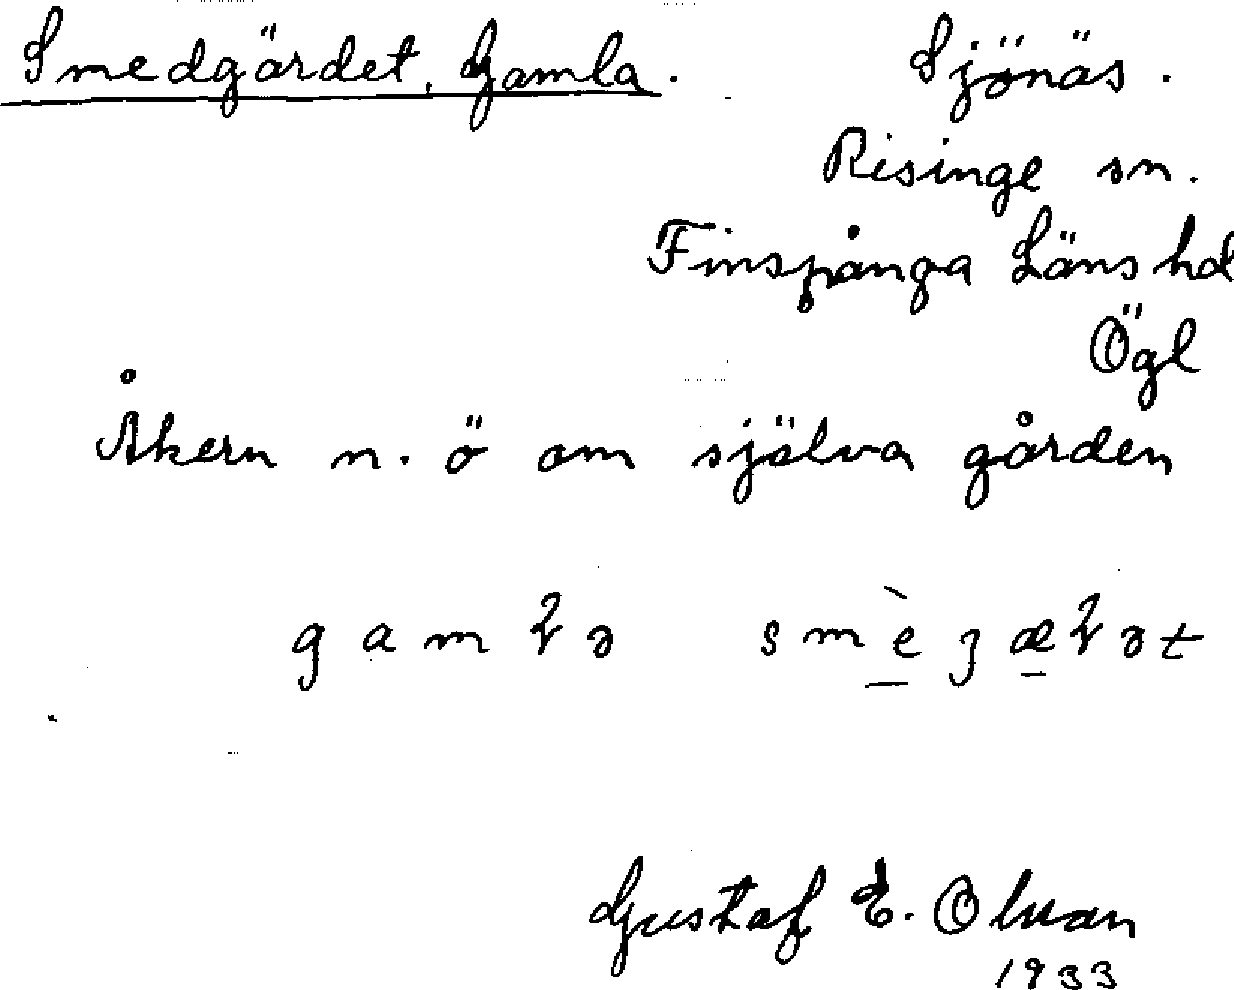 Smedgärdet, Gamla. Sjönäs.
Risinge sn.
Finspånga Läns hd
Ögl
Åkern n. ö om själva gården
Gustaf E. Olson
1933